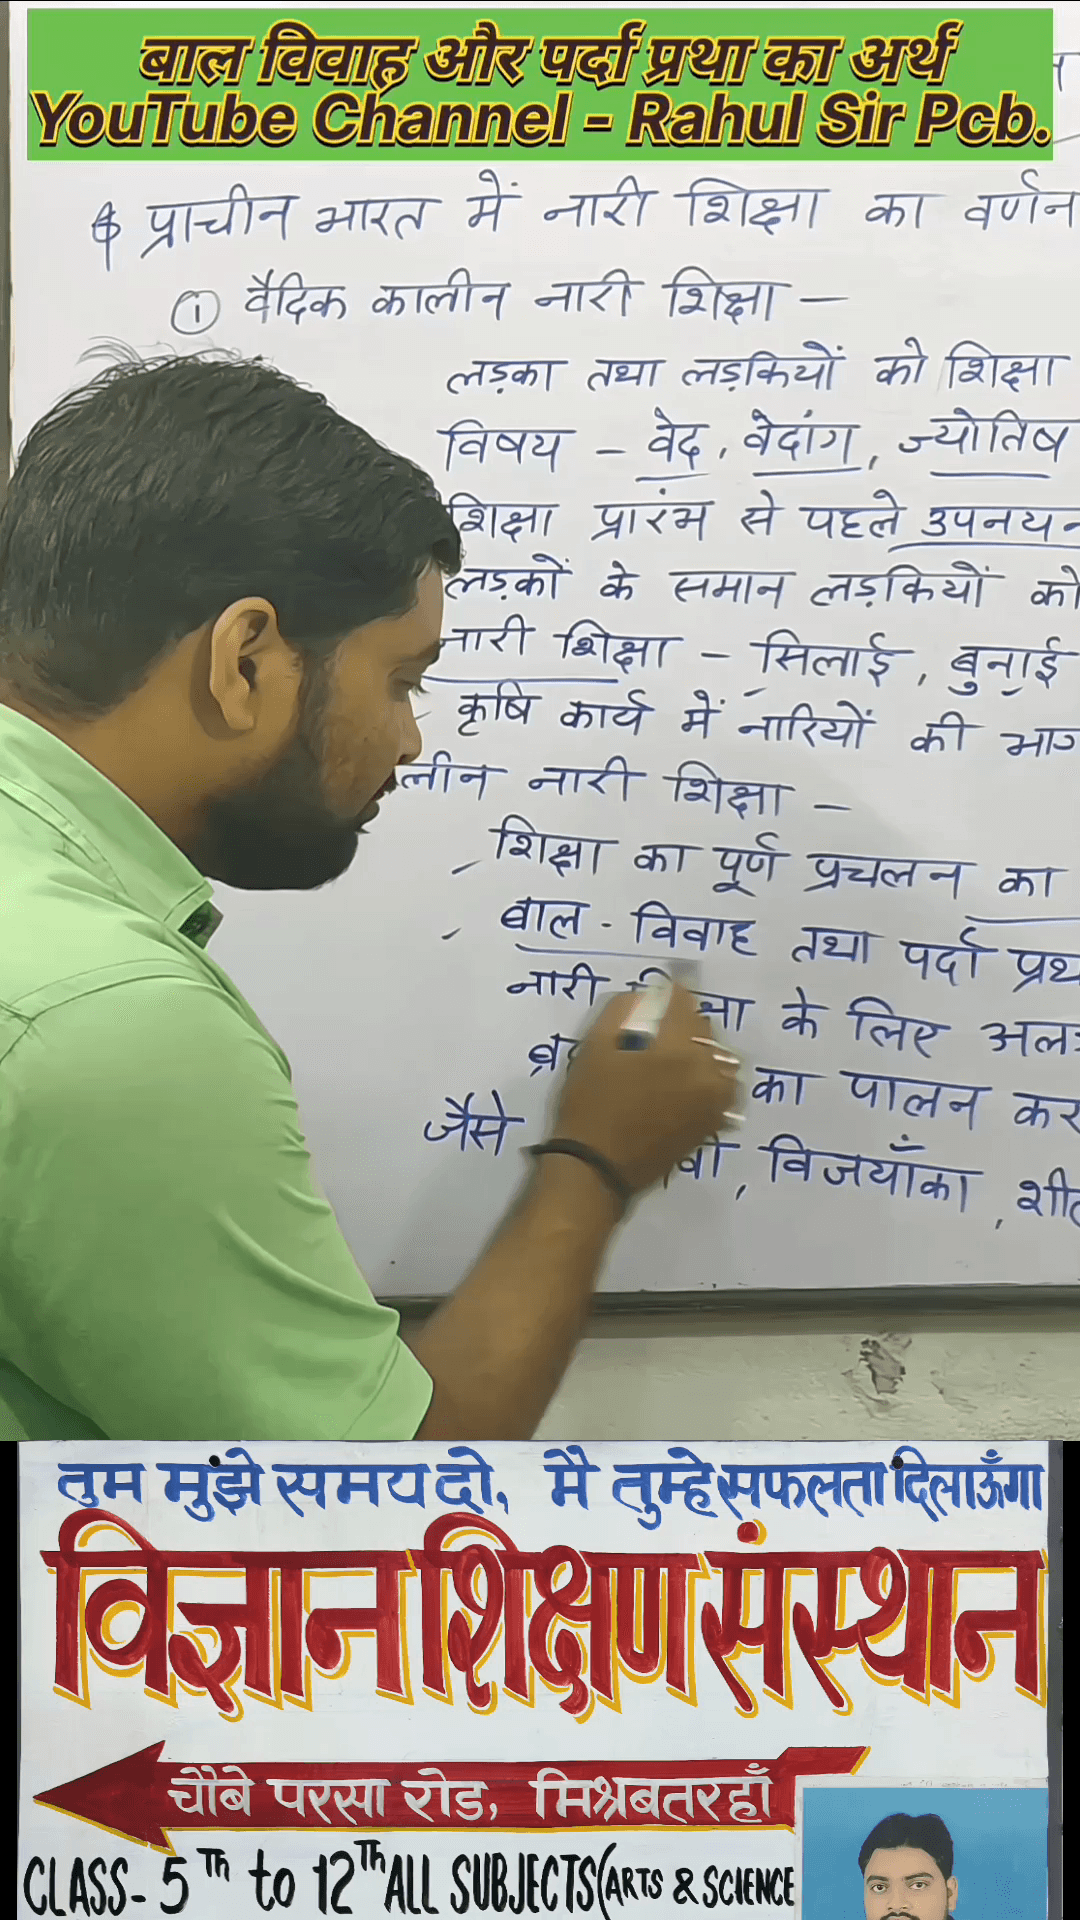 बाल विवाह और पर्दा प्रथा का अर्थ
YouTube Channel - Rahul Sir Pcb.
प्राचीन भारत में नारी शिक्षा का वर्णन
① वैदिक कालीन नारी शिक्षा —
लड़का तथा लड़कियों को शिक्षा
विषय - वेद, वेदांग, ज्योतिष
शिक्षा प्रारंभ से पहले उपनयन
लड़कों के समान लड़कियों को
नारी शिक्षा - सिलाई, बुनाई
कृषि कार्य में नारियों की
लीन नारी शिक्षा —
शिक्षा का पूर्ण प्रचलन का
बाल - विवाह तथा पर्दा
नारी के लिए
का पालन
जैसे , विजयाँका,
तुम मुंझे समय दो, मै तुम्हे सफलता दिलाऊँगा
विज्ञान शिक्षण संस्थान
चौबे परसा रोड, मिश्रबतरहाँ
CLASS- 5Th to 12Th ALL SUBJECTS (ARTS & SCIENCE